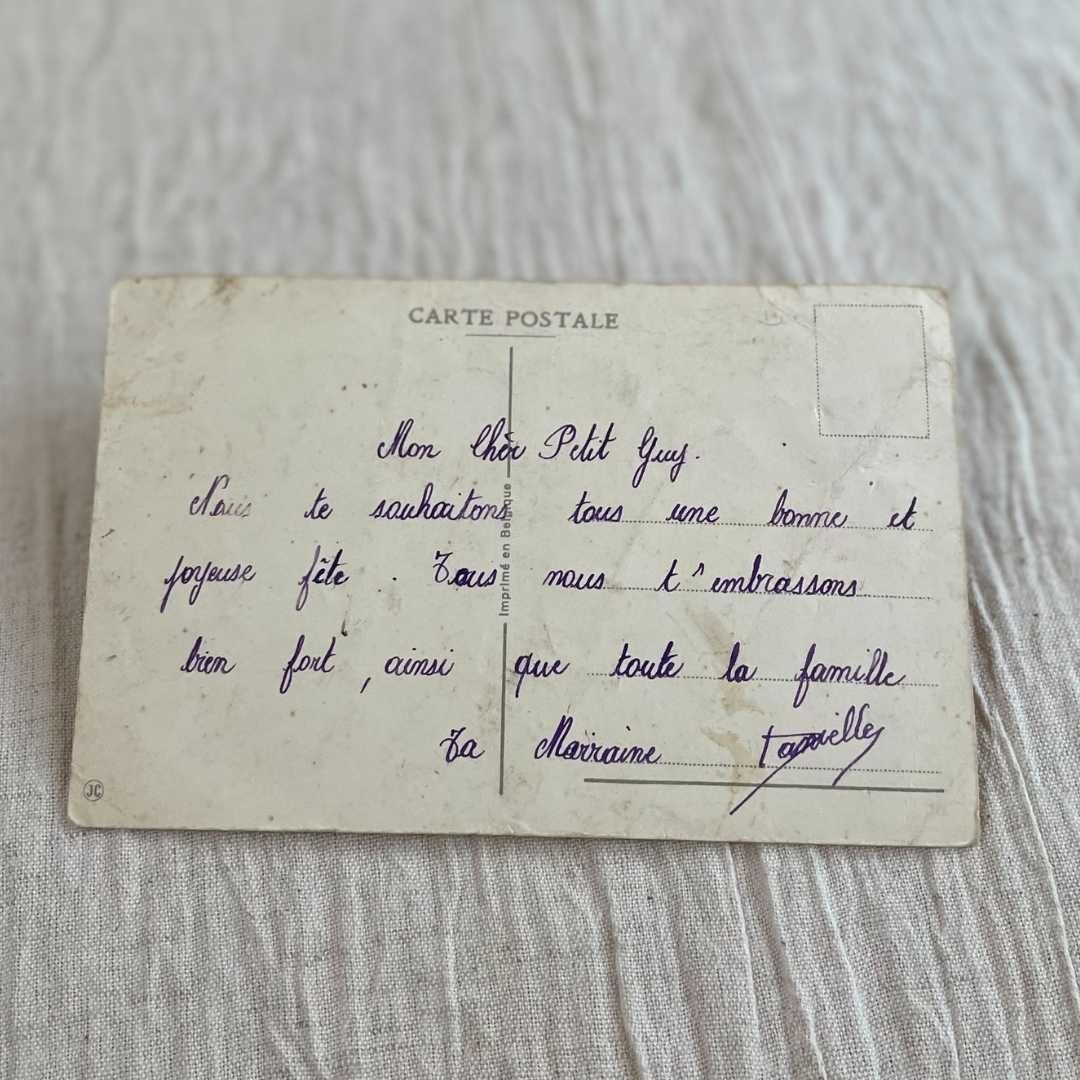 CARTE POSTALE
Mon Chèr Petit Guy.
Nous te souhaitons tous une bonne et
joyeuse fête. Tous nous t'embrassons
bien fort, ainsi que toute la famille
Ta Marraine
Imprimé en Belgique
JC